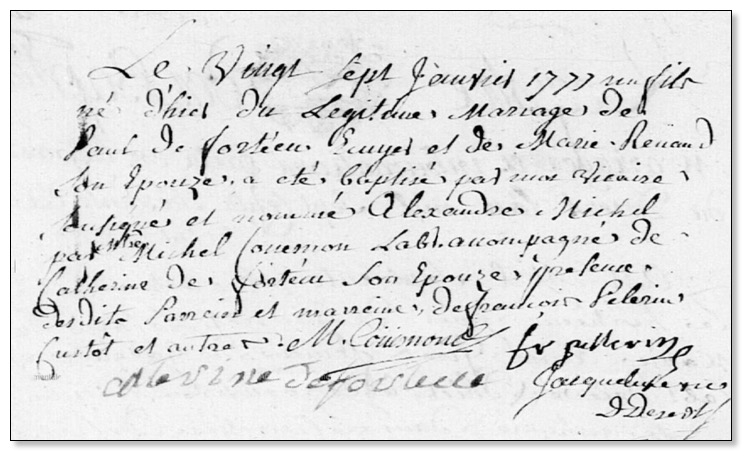 Le Vingt Sept Janvier 1777 un fils
né d'hier du Legitime Mariage de
Paul de fortéeu Ecuyer et de Marie Renaud
Son Epouze, a eté baptise par moi Vicaire
Sousigné et nommé Alexandre Michel
par Michel Couesnon Lab. acompagné de
Catherine de fortéeu Son Epouze, presence
desdits Parrein et marreine, de francois Pelerin
Custôt et autres. M. Coüesnon
fr pellerin
Catherine de
Jacques